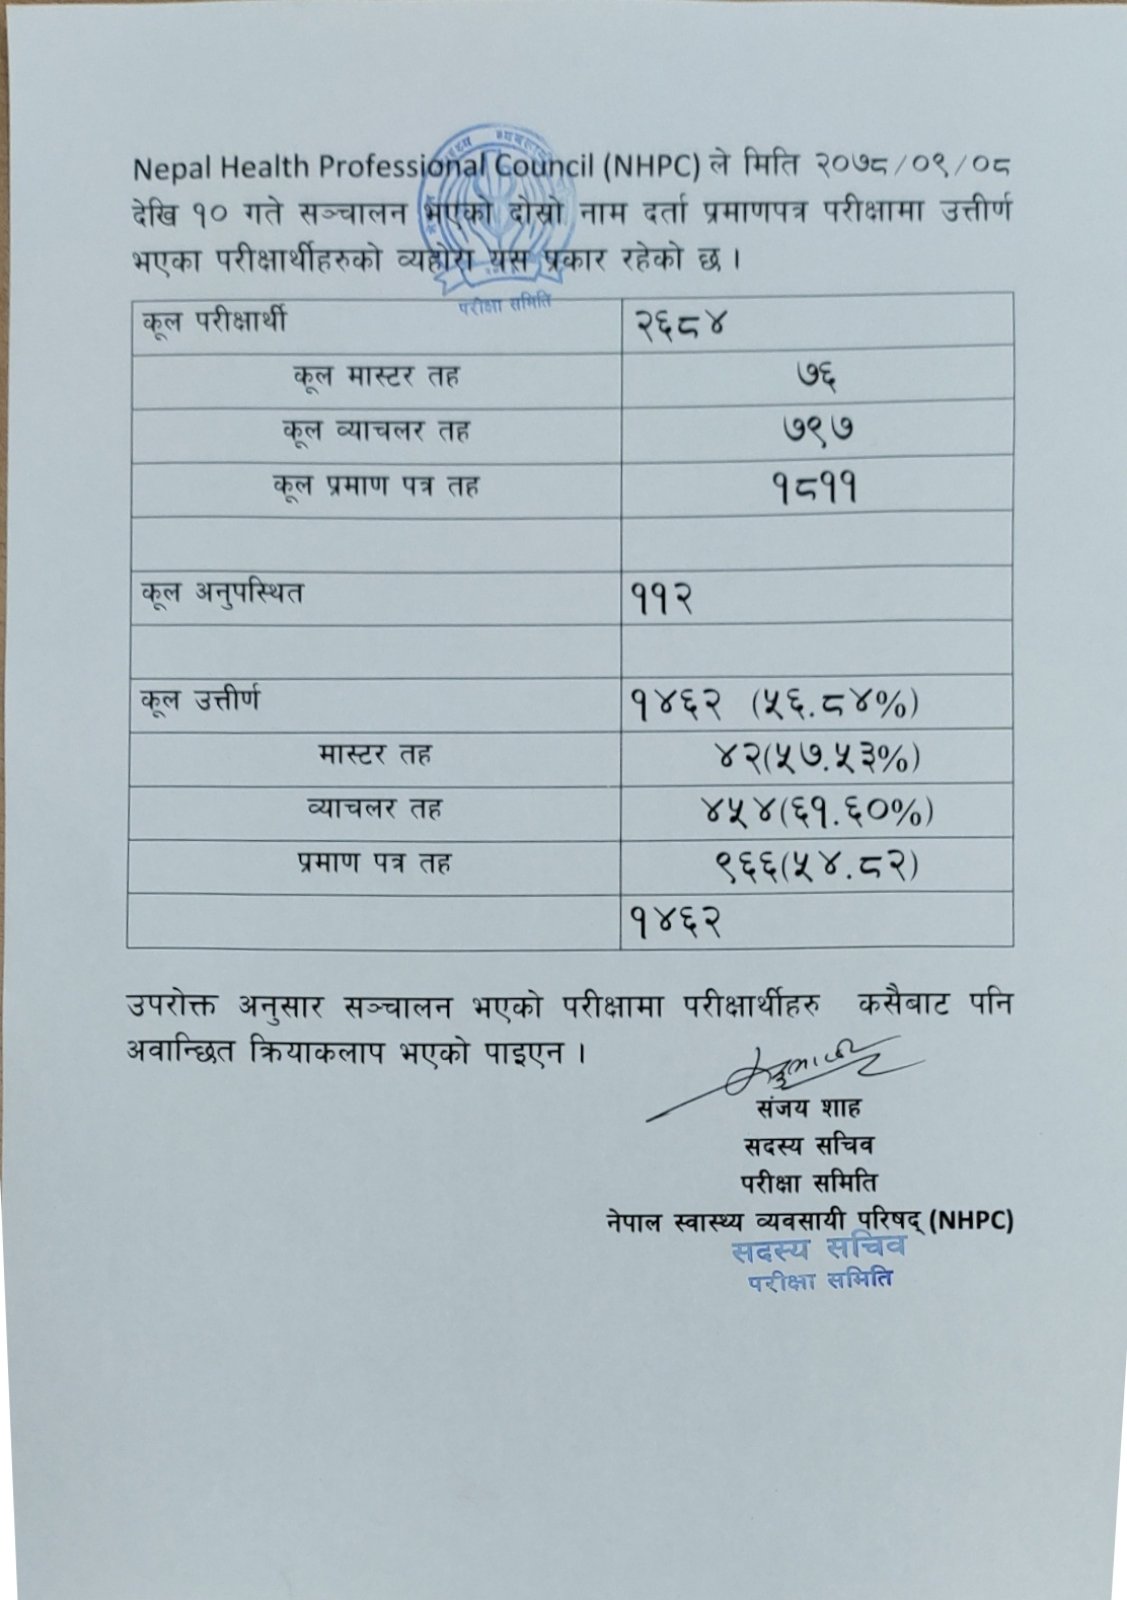 Nepal Health Professional Council (NHPC) ले मिति २०७८/०९/०८
देखि १० गते सञ्चालन भएको दोस्रो नाम दर्ता प्रमाणपत्र परीक्षामा उत्तीर्ण
भएका परीक्षार्थीहरुको व्यहोरा यस प्रकार रहेको छ ।
परीक्षा समिति
कूल परीक्षार्थी २६८४
कूल मास्टर तह ७६
कूल व्याचलर तह ७९७
कूल प्रमाण पत्र तह १८११
कूल अनुपस्थित ११२
कूल उत्तीर्ण १४६२ (५६.८४%)
मास्टर तह ४२(५७.५३%)
व्याचलर तह ४५४(६१.६०%)
प्रमाण पत्र तह ९६६(५४.८२)
१४६२
उपरोक्त अनुसार सञ्चालन भएको परीक्षामा परीक्षार्थीहरु कसैबाट पनि
अवान्छित क्रियाकलाप भएको पाइएन ।
संजय शाह
सदस्य सचिव
परीक्षा समिति
नेपाल स्वास्थ्य व्यवसायी परिषद् (NHPC)
सदस्य सचिव
परीक्षा समिति